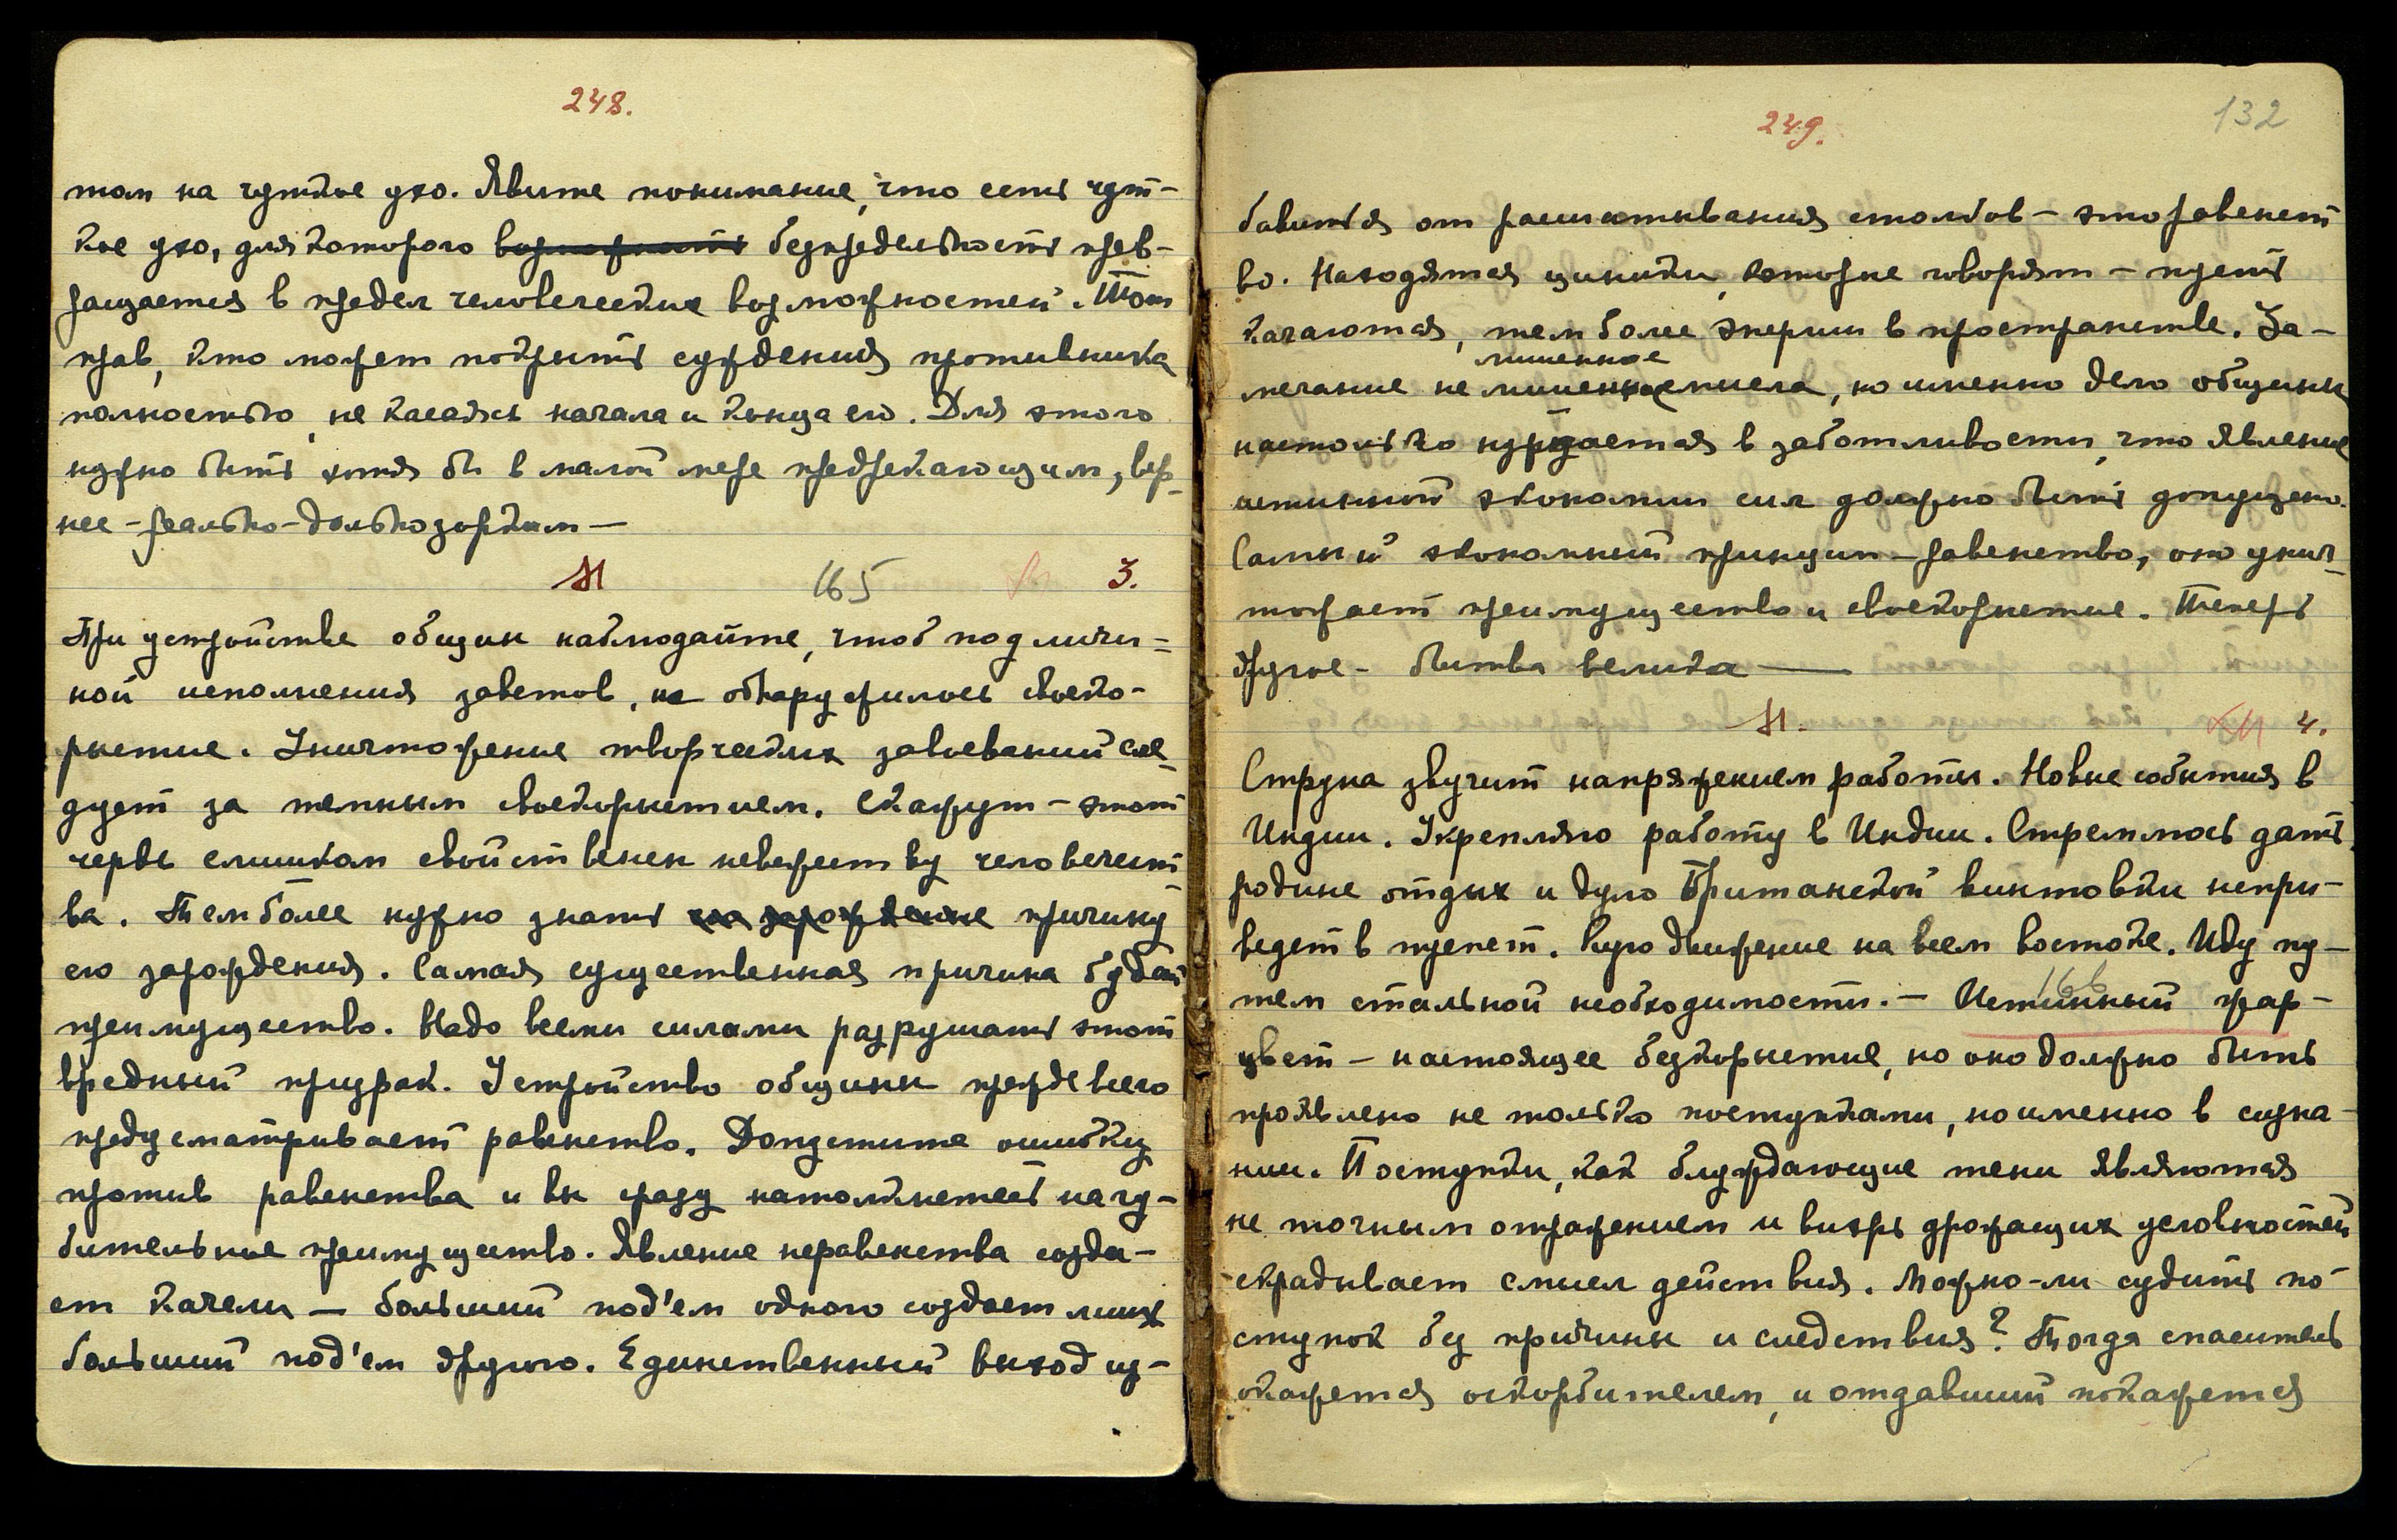 248.
том на чуткое ухо. Явите понимание, что есть чут-
кое ухо, для которого возможность безпредельность прев-
ращается в предел человеческих возможностей. Тот
прав, кто может покрыть суждения противника
полностью, не касаясь начала и конца его. Для этого
нужно быть хотя бы в малой мере предрекающим, вер-
нее - реально-дальнозорким —
165 3.
При устройстве общин наблюдайте, чтоб под личи-
ной исполнения заветов, не обнаружилось своеко-
рыстие. Уничтожение творческих завоеваний сле-
дует за темным своекорыстием. Скажут - этот
червь слишком свойственен невежеству человечест-
ва. Тем более нужно знать зарождение причину
его зарождения. Самая существенная причина будет
преимущество. Надо всеми силами разрушать этот
вредный призрак. Устройство общины прежде всего
предусматривает равенство. Допустите ошибку
против равенства и вы сразу натолкнетесь на гу-
бительное преимущество. Явление неравенства созда-
ет качели — больший под'ем одного создает лишь
больший под'ем другого. Единственный выход из-
249.
132
бавиться от расшатывания столбов - это равенст
во. Находятся циники, которые говорят - пусть
качаются, тем более энергии в пространстве. За-
лишенное
мечание не лишенное смысла, но именно дело общины
настолько нуждается в заботливости, что явление
истинной экономии сил должно быть допущено.
Самый экономный принцип - равенство, оно унич-
тожает преимущество и своекорыстие. Теперь
другое - битва велика —
4.
Струна звучит напряжением работы. Новые события в
Индии. Укрепляю работу в Индии. Стремлюсь дать
родине отдых и дуло Британской винтовки непри-
ведет в трепет. Кую движение на всем востоке. Иду пу-
тем стальной необходимости. — Истинный жар-
166
цвет - настоящее безкорыстие, но оно должно быть
проявлено не только поступками, но именно в созна-
нии. Поступки, как блуждающие тени являются
не точным отражением и вихрь дрожащих условностей
скрадывает смысл действия. Можно-ли судить по-
ступок без причины и следствия? Тогда спаситель
окажется оскорбителем, и отдавший покажется